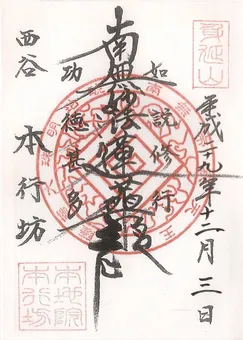 身延山
平成二九年十二月三日
如説修行
南無妙法蓮華経
功徳甚多
西谷
本行坊
本地院
本行坊